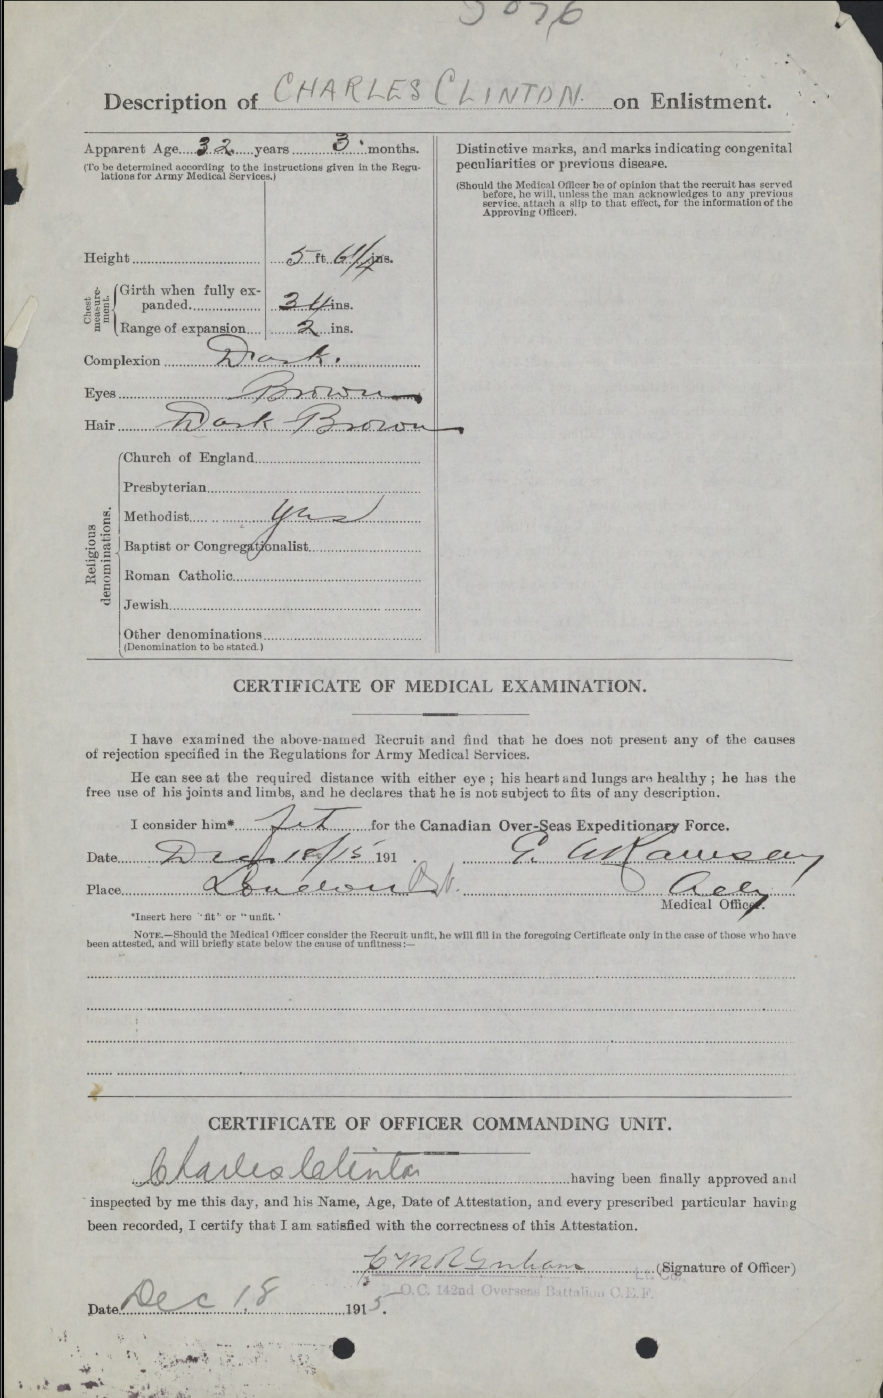 Description of CHARLES CLINTON. on Enlistment.
Apparent Age....32....years....3....months.
(To be determined according to the instructions given in the Regu-
lations for Army Medical Services.)
Height....5 ft. 6 1/4 ins.
Chest measure-ment.
Girth when fully ex-
panded....34 ins.
Range of expansion....2 ins.
Complexion....Dark.
Eyes....Brown
Hair....Dark Brown
Religious denominations.
Church of England....
Presbyterian....
Methodist....Yes
Baptist or Congregationalist....
Roman Catholic....
Jewish....
Other denominations....
(Denomination to be stated.)
Distinctive marks, and marks indicating congenital
peculiarities or previous disease.
(Should the Medical Officer be of opinion that the recruit has served
before, he will, unless the man acknowledges to any previous
service, attach a slip to that effect, for the information of the
Approving Officer).
CERTIFICATE OF MEDICAL EXAMINATION.
I have examined the above-named Recruit and find that he does not present any of the causes
of rejection specified in the Regulations for Army Medical Services.
He can see at the required distance with either eye ; his heart and lungs are healthy ; he has the
free use of his joints and limbs, and he declares that he is not subject to fits of any description.
I consider him*....fit....for the Canadian Over-Seas Expeditionary Force.
Date....Dec 18/15 191 .
Place....London Ont.
Ramsay
Medical Officer.
*Insert here "fit" or "unfit."
NOTE.—Should the Medical Officer consider the Recruit unfit, he will fill in the foregoing Certificate only in the case of those who have
been attested, and will briefly state below the cause of unfitness:—
CERTIFICATE OF OFFICER COMMANDING UNIT.
Charles Clinton....having been finally approved and
inspected by me this day, and his Name, Age, Date of Attestation, and every prescribed particular having
been recorded, I certify that I am satisfied with the correctness of this Attestation.
C M R Graham....(Signature of Officer)
Lt. Col.
O.C. 142nd Overseas Battalion C.E.F.
Date Dec 18....1915.